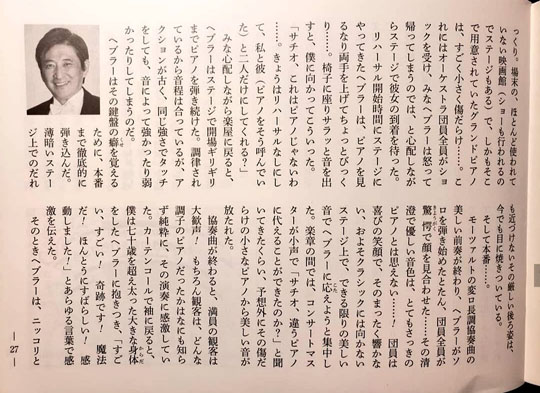 っくり。場末の、ほとんど使われて
いない映画館（ショーも行われるの
でステージもある）で、しかもそこ
で用意されていたグランドピアノ
は、すごく小さく傷だらけ……。こ
れにはオーケストラ団員全員がショ
ックを受け、みなヘブラーは怒って
帰ってしまうのでは、と心配しなが
らステージで彼女の到着を待った。
リハーサル開始時間にステージに
やってきたヘブラーは、ピアノを見
るなり両手を上げてちょっとびっく
り……。椅子に座りサラッと音を出
すと、僕に向かってこういった。
「サチオ、これはピアノじゃないわ
……。きょうはリハーサルなしにし
て、私と彼（ピアノをそう呼んでい
た）と二人だけにしてくれる？」
みな心配しながら楽屋に戻ると、
ヘブラーはステージで開場ギリギリ
までピアノを弾き続けた。調律され
ているから音程は合っているが、ア
クションが古く、同じ強さでタッチ
をしても、音によって強かったり弱
かったりしてしまうのだ。
ヘブラーはその鍵盤の癖を覚える
ために、本番
まで徹底的に
弾き込んだ。
薄暗いステー
ジ上でのだれ
も近づけないその厳しい後ろ姿は、
今でも目に焼きついている。
そして本番……。
モーツァルトの変ロ長調協奏曲の
美しい前奏が終わり、ヘブラーがソ
ロを弾き始めたとたん、団員全員が
驚愕で顔を見合わせた……その清
澄で優しい音色は、とてもさっきの
ピアノとは思えない……！ 団員は
喜びの笑顔で、そのまったく響かな
い、およそクラシックには向かない
ステージ上で、できる限りの美しい
音でヘブラーに応えようと集中し
た。楽章の間では、コンサートマス
ターが小声で「サチオ、違うピアノ
に代えることができたのか？」と聞
いてきたくらい、予想外にその傷だ
らけの小さなピアノから美しい音が
放たれた。
協奏曲が終わると、満員の観客は
大歓声！ もちろん観客は、どんな
調子のピアノだったかはなにも知ら
ず純粋に、その演奏に感激してい
た。カーテンコールで袖に戻ると、
僕は七十歳を超え太った大きな身体
をしたヘブラーに抱きつき、「すご
い、すごい！ 奇跡です！ 魔法
だ！ ほんとうにすばらしい！ 感
動しました！」とあらゆる言葉で感
激を伝えた。
そのときヘブラーは、ニッコリと
― 27 ―